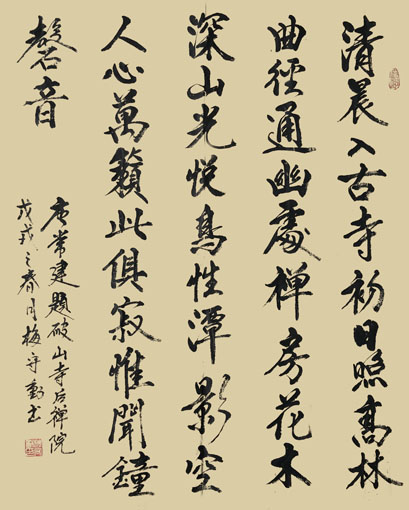 清晨入古寺初日照髙林
曲徑通幽處禅房花木
深山光悦鳥性潭影空
人心萬籟此俱寂惟聞鐘
磬音
唐常建題破山寺后禅院
戊戌之春月梅守勤书